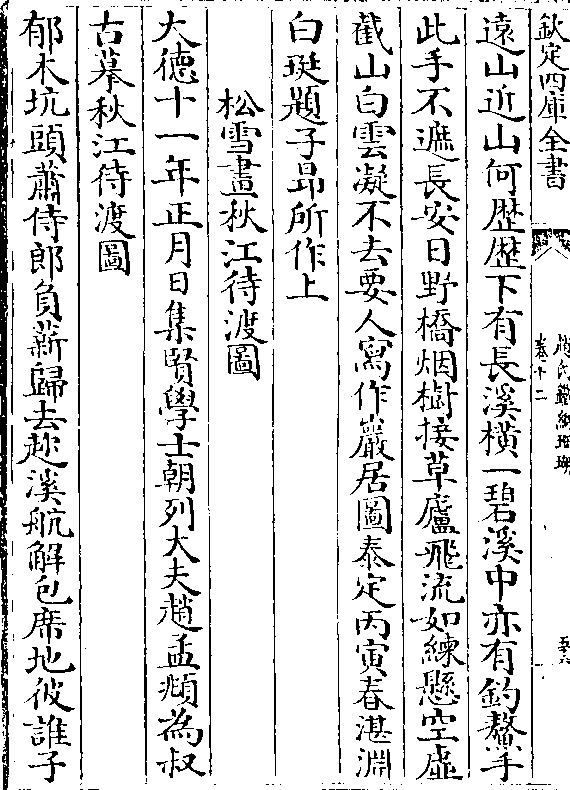 欽定四庫全書
卷十二
遠山近山何歴歴下有長溪橫一碧溪中亦有釣鰲手
此手不遮長安日野橋烟樹接草廬飛流如練懸空虛
截山白雲凝不去要人寫作巖居圖泰定丙寅春湛淵
白珽題子昻所作上
松雪畫秋江待渡圖
大德十一年正月日集賢學士朝列大夫趙孟頫為叔
古摹秋江待渡圖
郁木坑頭蕭侍郎負薪歸去趂溪航解包席地彼誰子